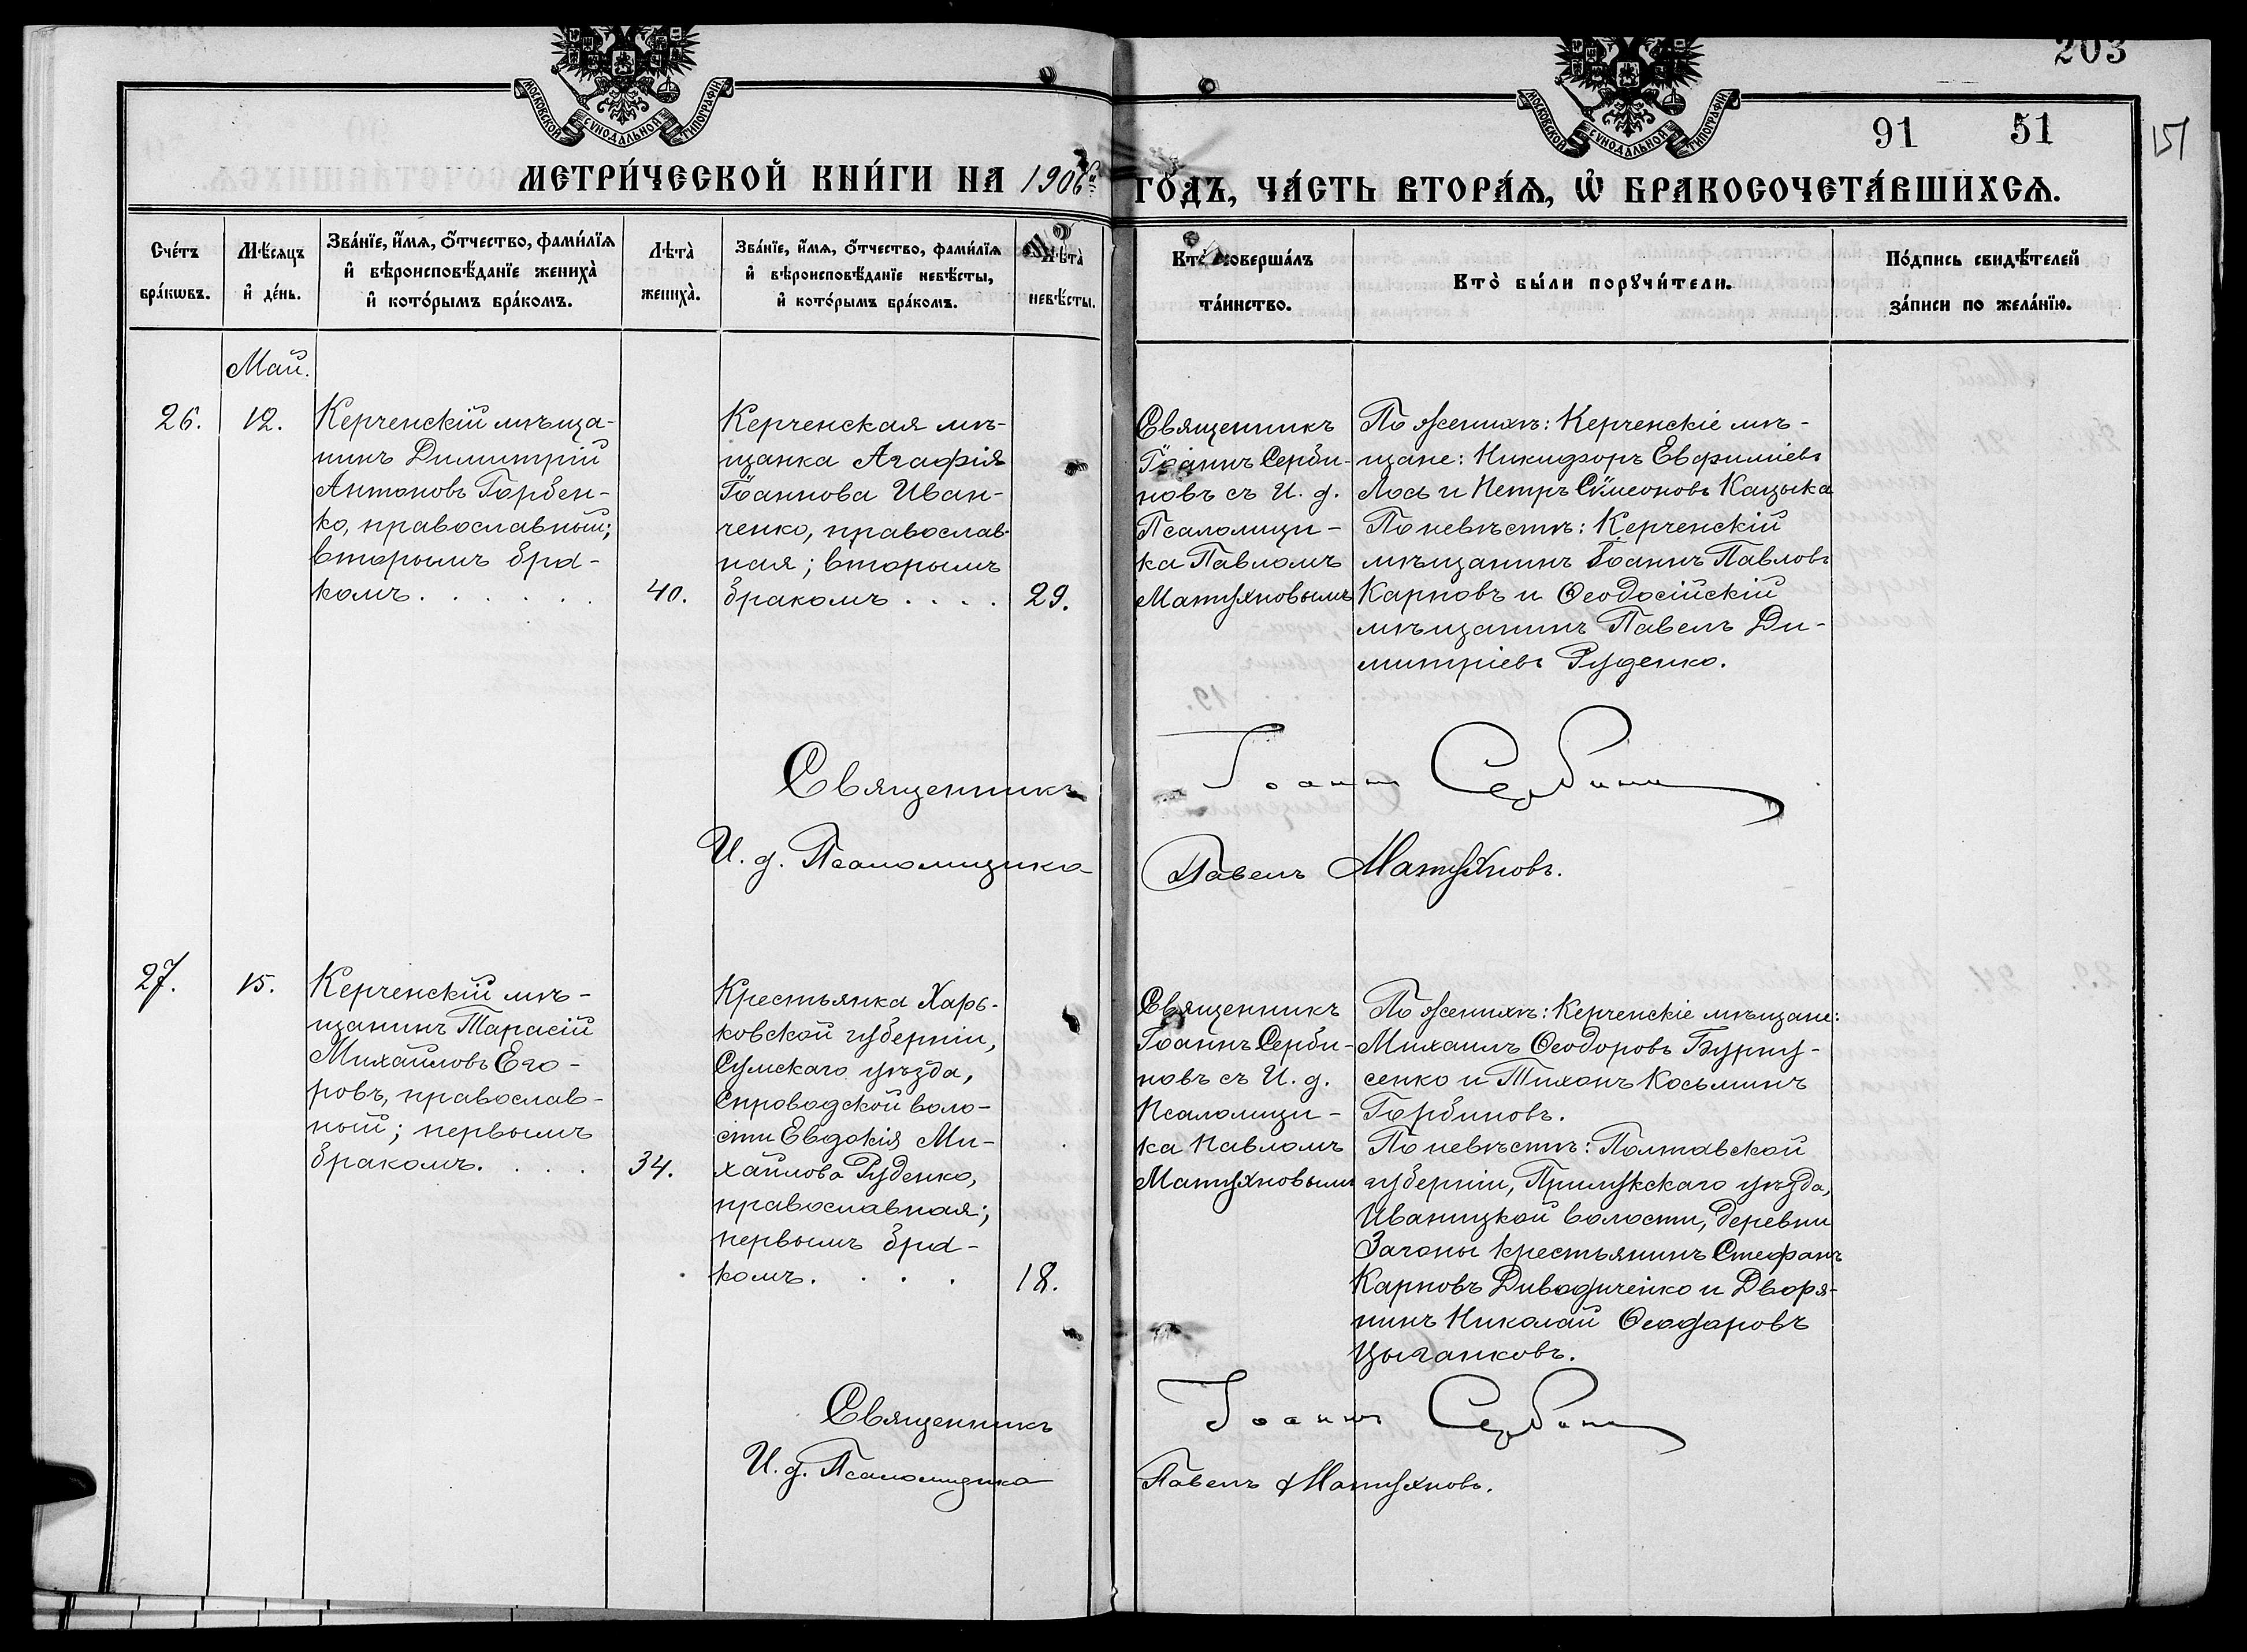 203
МОСКОВСКОЙ СѴНОДАЛЬНОЙ ТИПОГРАФІИ
МОСКОВСКОЙ СѴНОДАЛЬНОЙ ТИПОГРАФІИ
91 51
151
МЕТРИ́ЧЕСКОЙ КНИ́ГИ НА 1906й ГО́ДЪ, ЧА́СТЬ ВТОРА́Ѧ, Ѡ҆ БРАКОСОЧЕТА́ВШИХСѦ.
Сче́тъ
бра́кѡвъ.
Мѣ́сѧцъ
и҆ де́нь.
Зва́нїе, и҆́мѧ, ѻ҆́тчество, фами́лїѧ
и҆ вѣроисповѣ́данїе жениха̀
и҆ кото́рымъ бра́комъ.
Лѣта̀
жениха̀.
Зва́нїе, и҆́мѧ, ѻ҆́тчество, фами́лїѧ
и҆ вѣроисповѣ́данїе невѣ́сты,
и҆ кото́рымъ бра́комъ.
Лѣта̀
невѣ́сты.
Кто̀ соверша́лъ
та́инство.
Кто̀ бы́ли порꙋчи́тели.
По́дпись свидѣ́телей
за́писи по жела́нїю.
Май.
26.
12.
Керченскій мѣща-
нинъ Димитрій
Антоновъ Горбен-
ко, православный;
вторымъ бра-
комъ . . . . . .
40.
Керченская мѣ-
щанка Агафія
Іоаннова Иван-
ченко, православ-
ная; вторымъ
бракомъ . . . .
29.
Священникъ
Іоаннъ Серби-
новъ съ И. д.
Псаломщи-
ка Павломъ
Матухновымъ
По женихѣ: Керченскіе мѣ-
щане: Никифоръ Евфиміевъ
Лось и Петръ Сѵмеоновъ Кацыка
По невѣстѣ: Керченскій
мѣщанинъ Іоаннъ Павловъ
Карповъ и Ѳеодосійскій
мѣщанинъ Павелъ Ди-
митріевъ Руденко.
Священникъ Іоаннъ Сербиновъ
И. д. Псаломщика Павелъ Матухновъ.
27.
15.
Керченскій мѣ-
щанинъ Тарасій
Михайловъ Его-
ровъ, православ-
ный; первымъ
бракомъ. . . .
34.
Крестьянка Харь-
ковской губерніи,
Сумскаго уѣзда,
Спроводской воло-
сти Евдокія Ми-
хайлова Руденко,
православная;
первымъ бра-
комъ. . . .
18.
Священникъ
Іоаннъ Серби-
новъ съ И. д.
Псаломщи-
ка Павломъ
Матухновымъ
По женихѣ: Керченскіе мѣщане:
Михаилъ Ѳеодоровъ Бурну-
сенко и Тихонъ Косьминъ
Горбиновъ.
По невѣстѣ: Полтавской
губерніи, Прилукскаго уѣзда,
Иваницкой волости, деревни
Загоны крестьянинъ Стефанъ
Карповъ Диводиченко и Дворя-
нинъ Николай Ѳеодоровъ
Цыганковъ.
Священникъ Іоаннъ Сербиновъ
И. д. Псаломщика Павелъ Матухновъ.